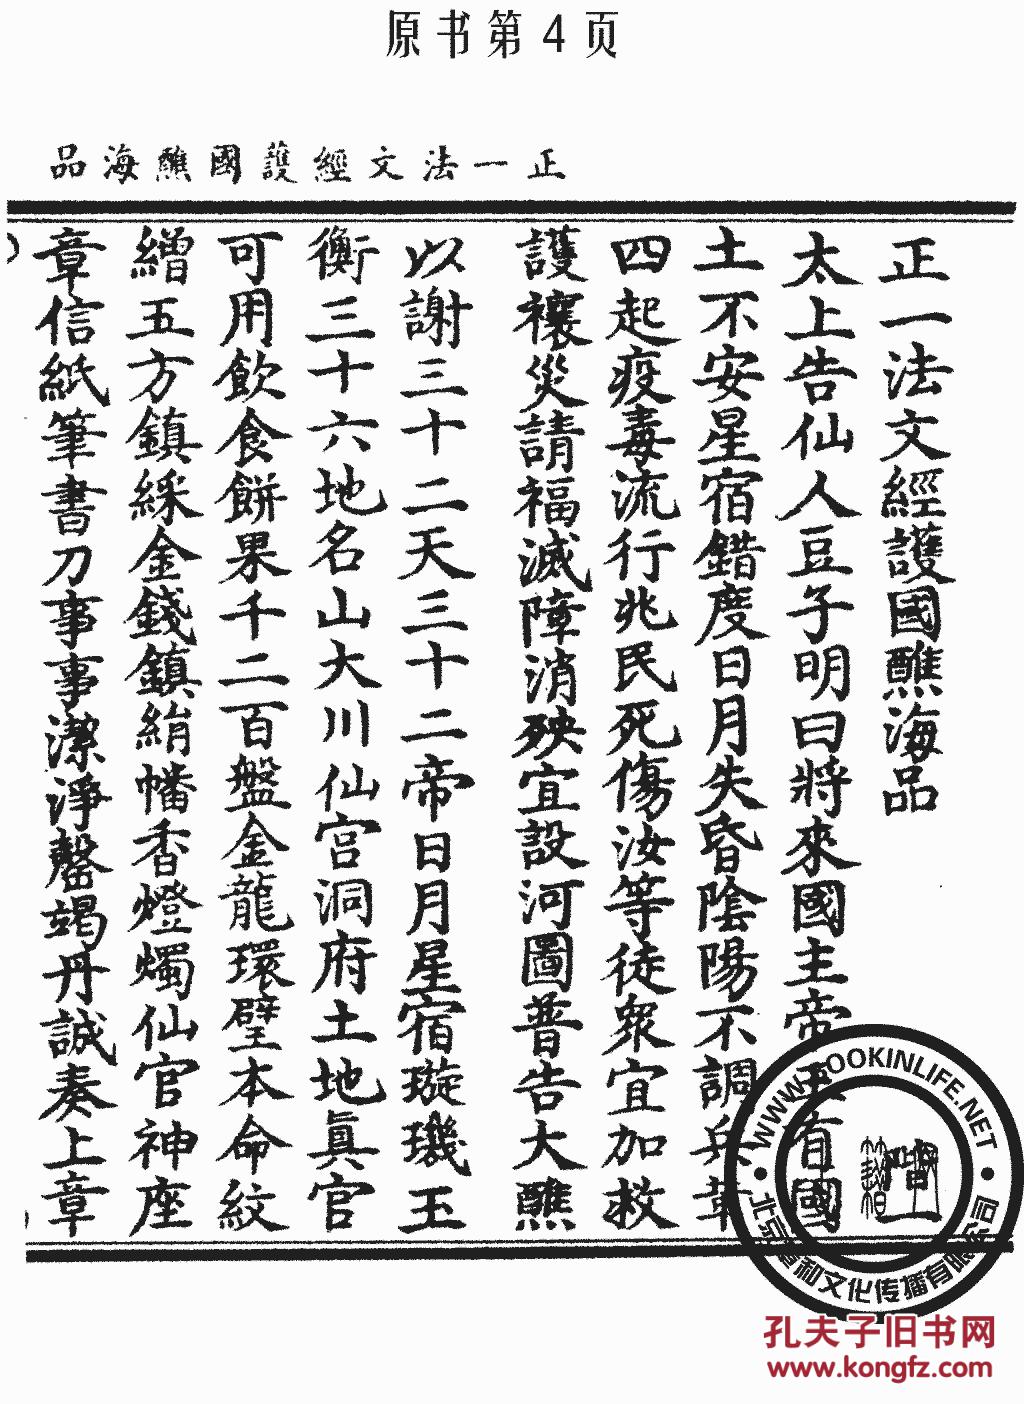 原书第4页
正一法文經護國醮海品
正一法文經護國醮海品
太上告仙人豆子明曰將來國主帝王有國
土不安星宿錯度日月失昏陰陽不調兵革
四起疫毒流行兆民死傷汝等徒衆宜加救
護禳災請福滅障消殃宜設河圖普告大醮
以謝三十二天三十二帝日月星宿璇璣玉
衡三十六地名山大川仙宫洞府土地眞官
可用飲食餅果千二百盤金龍環璧本命紋
繒五方鎮綵金錢鎮絹幡香燈燭仙官神座
章信紙筆書刀事事潔淨馨竭丹誠奏上章
WWW.BOOKINLIFE.NET
北京書和文化传播有限公司
孔夫子旧书网
www.kongfz.com